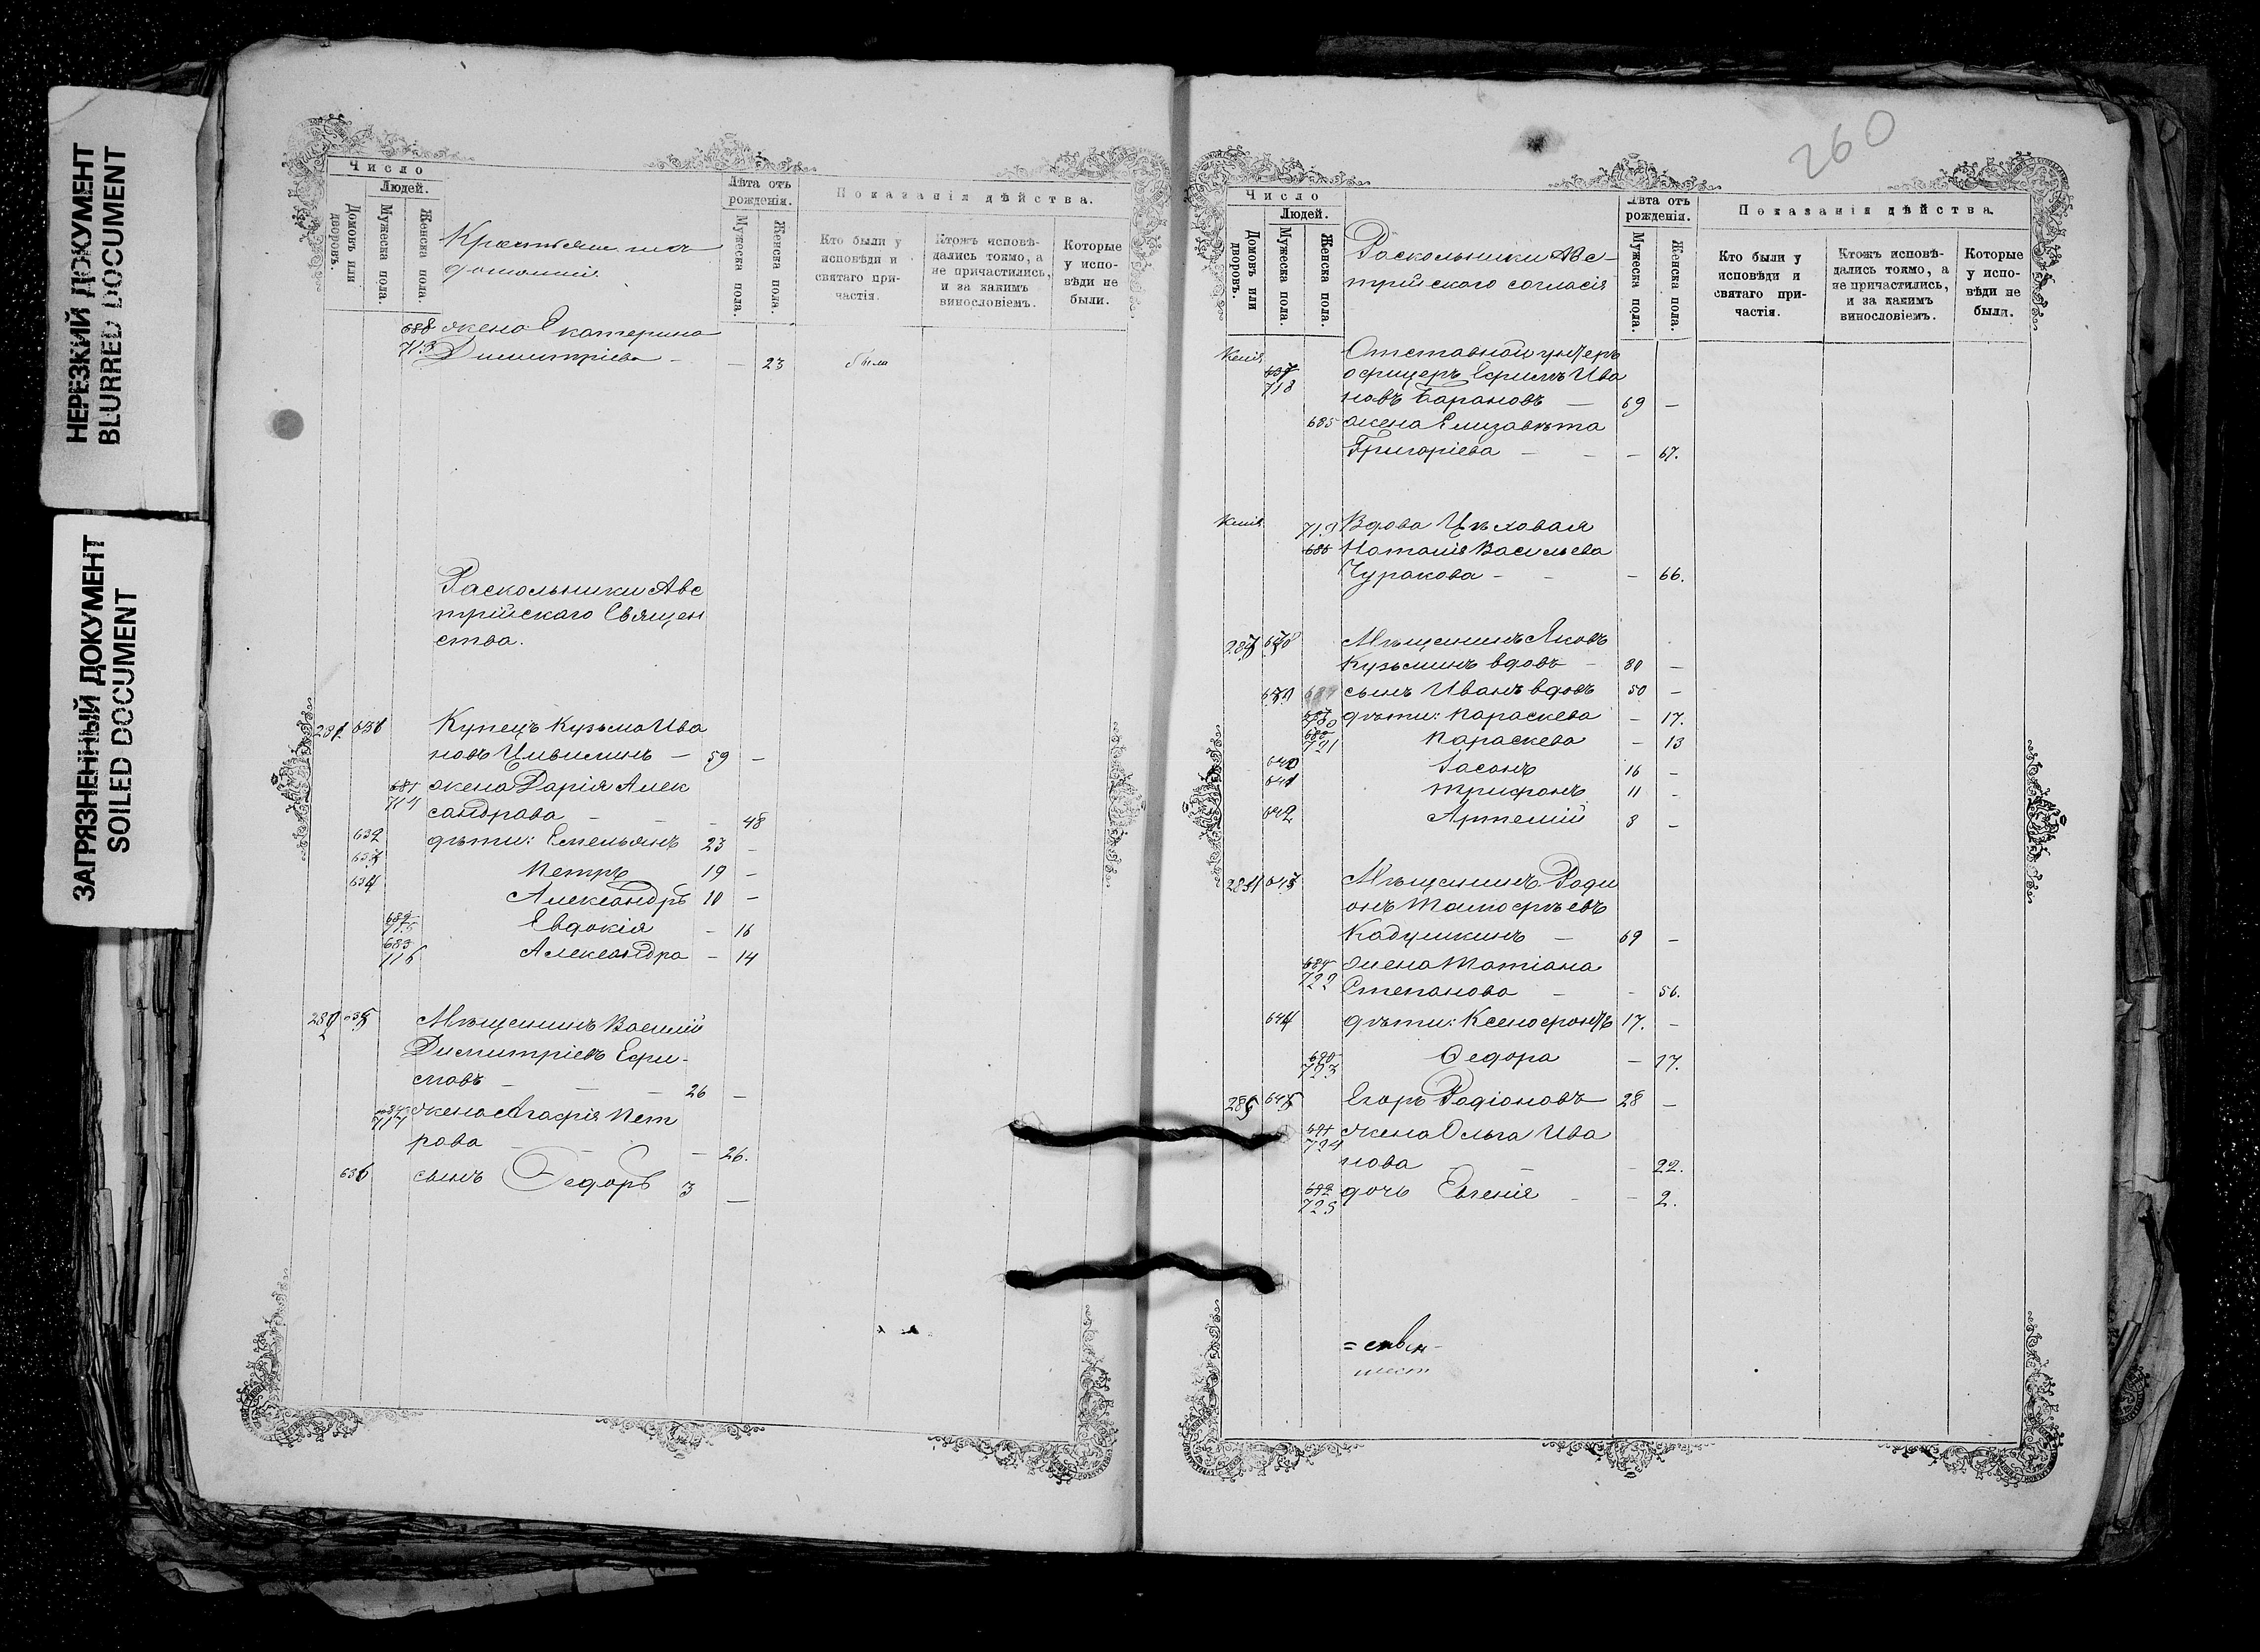 НЕРЕЗКИЙ ДОКУМЕНТ
BLURRED DOCUMENT
ЗАГРЯЗНЕННЫЙ ДОКУМЕНТ
SOILED DOCUMENT
Число
Людей.
Домовъ или дворовъ.
Мужеска пола.
Женска пола.
Лѣта отъ рожденія.
Мужеска пола.
Женска пола.
Показанія дѣйства.
Кто были у исповѣди и святаго причастія.
Ктожъ исповѣдались токмо, а не причастились, и за какимъ винословіемъ.
Которые у исповѣди не были.
688 жена Екатерина
713 Димитріева — — 23 была
Раскольники Авс
трійскаго Священ
ства.
Купецъ Кузьма Ива
новъ — 59 —
681 жена Дарія Алек
714 сандрова — — 48
632 дѣти: Емельянъ 23 —
633 Петръ 19 —
634 Александръ 10 —
682 715 Евдокія — 16
683 716 Александра — 14
635 Мѣщанинъ Василій
Димитріевъ Ефи-
мовъ — — — 26 —
жена Агафія Пет
рова — — 26.
636 сынъ Федоръ 3 —
260
Число
Людей.
Домовъ или дворовъ.
Мужеска пола.
Женска пола.
Раскольники Авс-
трійскаго согласія
Лѣта отъ рожденія.
Мужеска пола.
Женска пола.
Показанія дѣйства.
Кто были у исповѣди и святаго причастія.
Ктожъ исповѣдались токмо, а не причастились, и за какимъ винословіемъ.
Которые у исповѣди не были.
Келія Отставной унтеръ
637 718 офицеръ Ефимъ Ива
новъ Барановъ — 69 —
685 жена Елизавѣта
Григоріева — — — 67.
Келія 719 Вдова Цѣховая
686 Наталія Васильева
Чуракова — — — 66.
Мѣщанинъ Яковъ
Кузьминъ вдовъ — 80 —
сынъ Иванъ вдовъ 50 —
687 720 дѣти: Параскева — 17.
688 721 Параскева — 13
640 Іасонъ 16 —
641 Трифонъ 11 —
642 Артемій 8 —
643 Мѣщанинъ Роди
онъ Тимофѣевъ
Кадушкинъ — 69 —
689 жена Татіана
722 Степанова — — 56.
644 дѣти: Ксенофонтъ 17. —
690 723 Федора — 17.
285 645 Егоръ Родіоновъ 28 —
691 жена Ольга Ива
724 нова — — 22.
692 725 дочь Евгенія — — 2.